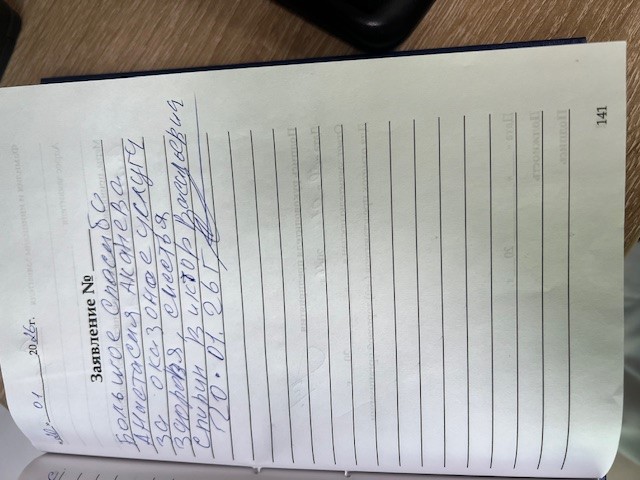 «20» 01 2026г.
Заявление №
Большое спасибо
Анастасия
за оказоные услуги
здоровья, счастья
Спирин Виктор Васильевич
20.01.26г
141